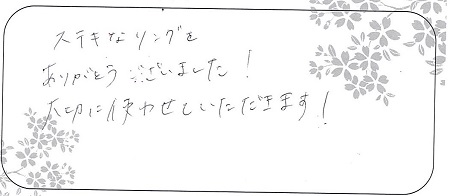 ステキなリングを
ありがとうございました!
大切に使わせていただきます!